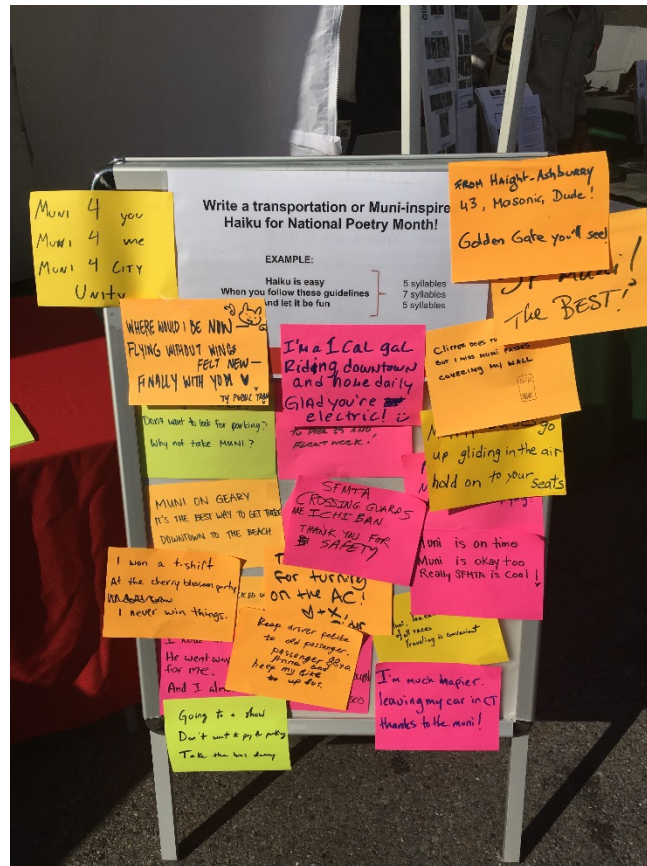 Write a transportation or Muni-inspire
Haiku for National Poetry Month!
EXAMPLE:
Haiku is easy
When you follow these guidelines
And let it be fun
5 syllables
7 syllables
5 syllables
MUNI 4 you
MUNI 4 me
MUNI 4 CITY
UNITY
FROM HAIGHT-ASHBURRY
43, MASONIC, DUDE!
Golden Gate you'll see!
MUNI!
THE BEST!
WHERE WOULD I BE NOW—
FLYING WITHOUT WINGS
FELT NEW—
FINALLY WITH YOU
TY PUBLIC
I'm a 1 Cal gal
Riding downtown
and home daily
Glad you're
electric!
CLIPPER DOES
BUT I MISS MUNI PASSES
COVERING MY WALL
Don't want to look for parking?
Why not take MUNI?
TO PIER 15 AND
go
up gliding in the air
hold on to your
seats
MUNI ON GEARY
IT'S THE BEST WAY TO GET THERE
DOWNTOWN TO THE BEACH
SFMTA
CROSSING GUARDS
ICHIBAN
THANK YOU FOR
SAFETY
Muni is on time
Muni is okay too
Really SFMTA is Cool!
I won a t-shirt
At the cherry blossom party
I never win things.
for turning
on the AC!
of all races
Traveling is convenient
Keep driver polite
to old passenger.
passenger
and
keep my
up
I
He went way
for me.
And I
I'm much happier.
leaving my car in CT
thanks to the muni!
Going to a show
Don't want to pay for parking
Take the bus dummy